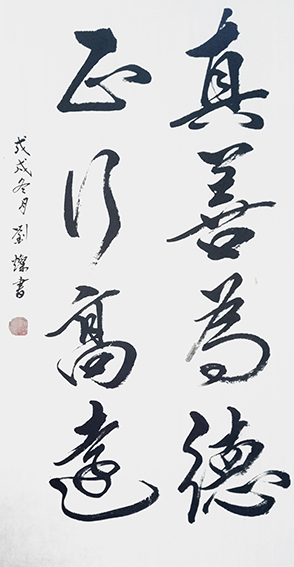 真善为德
正行高達
戊戌冬月劉燦書